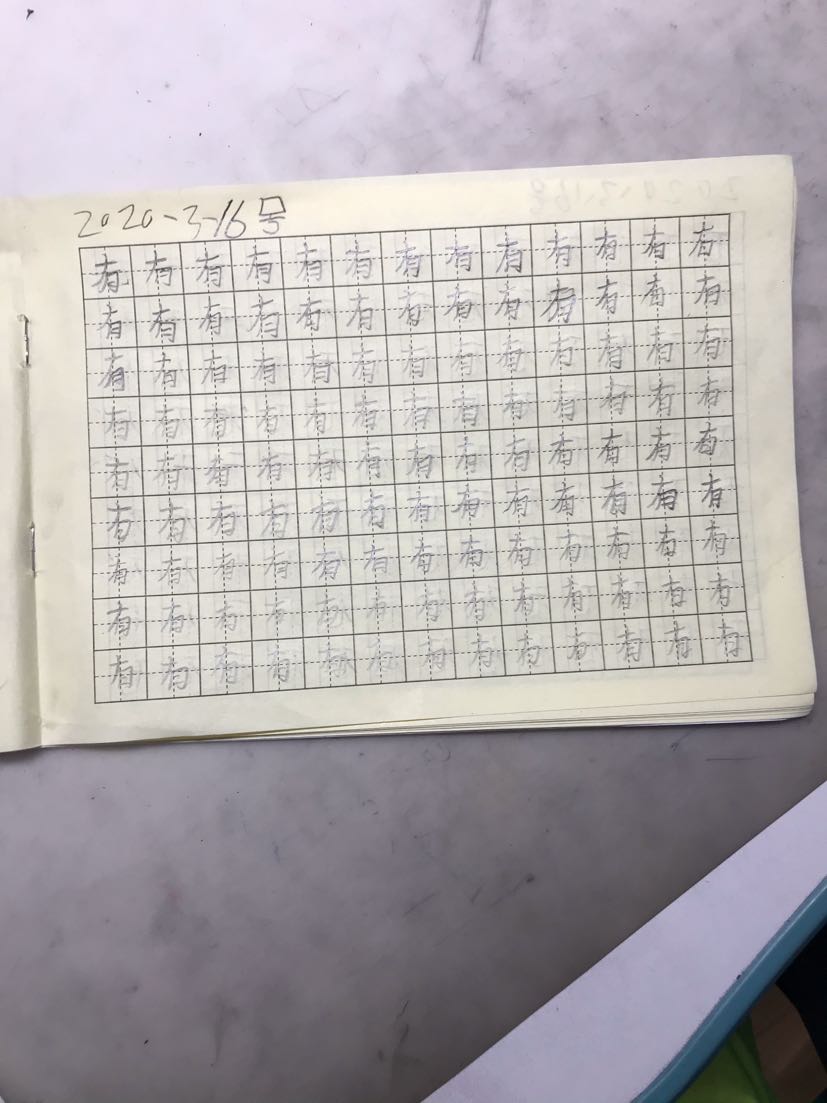 2020-3-16号
有有有有有有有有有有有有有
有有有有有有有有有有有有有
有有有有有有有有有有有有有
有有有有有有有有有有有有有
有有有有有有有有有有有有有
有有有有有有有有有有有有有
有有有有有有有有有有有有有
有有有有有有有有有有有有有
有有有有有有有有有有有有有